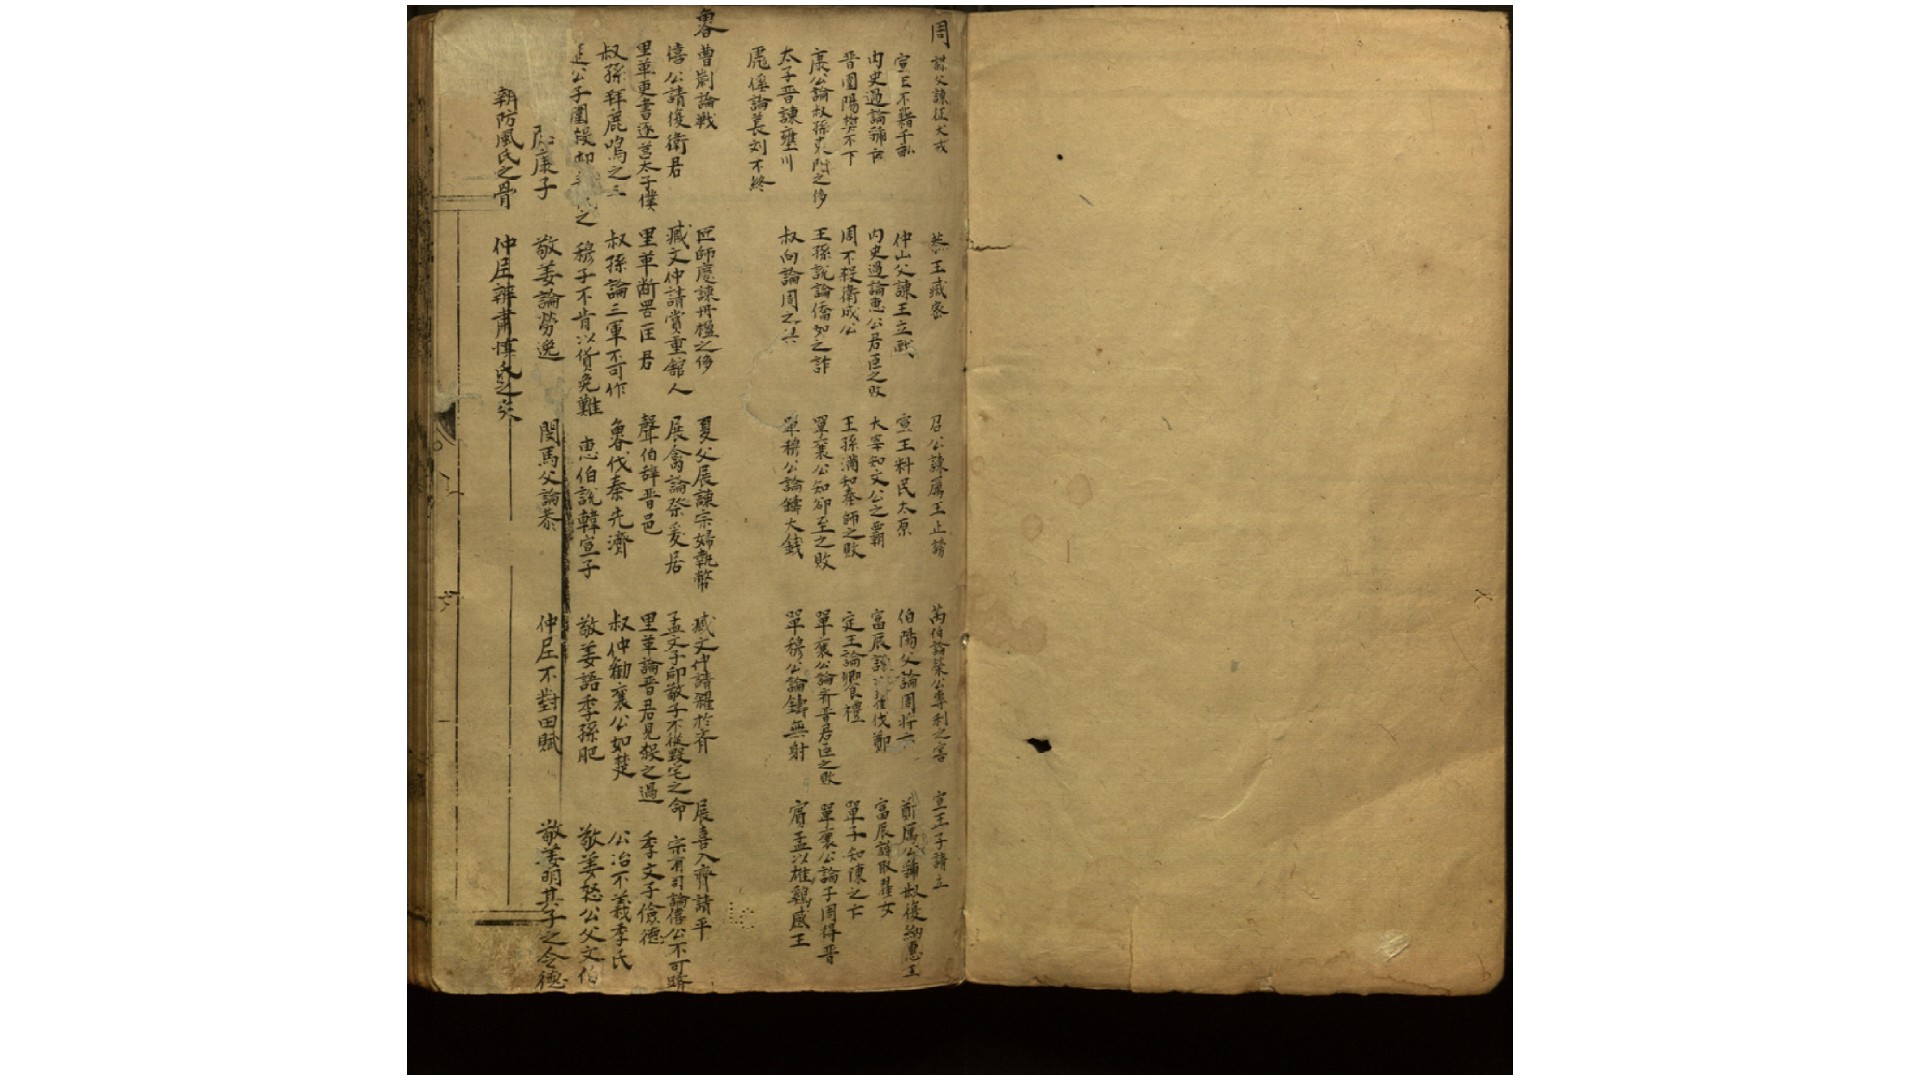 周 謀父諫征犬戎 恭王滅密 召公諫厲王止謗 芮伯論榮公專利之害 宣王子請立
宣王不籍千畝 仲山父諫王立戲 宣王料民太原 伯陽父論周將亡 鄭厲公虢叔復納惠王
內史過論虢亡 內史過論惠公君臣之敗 大宰知文公之覇 富辰諫 伐鄭 富辰諫取翟女
晋圍陽樊不下 周不殺衛成公 王孫滿知秦師之敗 定王論卿食禮 單子知陳之亡
康公論叔孫 之侈 王孫說論僑如之詐 單襄公知郤至之敗 單襄公論齊晋君臣之敗 單襄公論子周得晋
太子晋諫壅川 叔向論周之 單穆公論鑄大錢 單穆公論鑄無射 賓孟以雄鷄感王
彪傒論萇刘不終
魯 曹劌論戰 匠師慶諫丹楹之侈 夏父展諫宗婦執幣 臧文仲請糴於齊 展喜入齊請平
僖公請復衛君 臧文仲請賞重館人 展禽論祭爰居 孟文子郈敬子不從毀宅之命 宗有司論僖公不可躋
里革更書逐莒太子僕 里革断罟匡君 聲伯辞晋邑 里革論晋君見弒之過 季文子儉德
叔孫拜鹿鳴之三 叔孫論三軍不可作 魯伐秦先濟 叔仲勸襄公如楚 公冶不義季氏
公子圍 之 穆子不肯以貨免難 惠伯說韓宣子 敬姜語季孫肥 敬姜怒公父文伯
康子 敬姜論勞逸 閔馬父論恭 仲尼不對田賦 敬姜明其子之令德
辨防風氏之骨 仲尼辨肅慎氏之矢